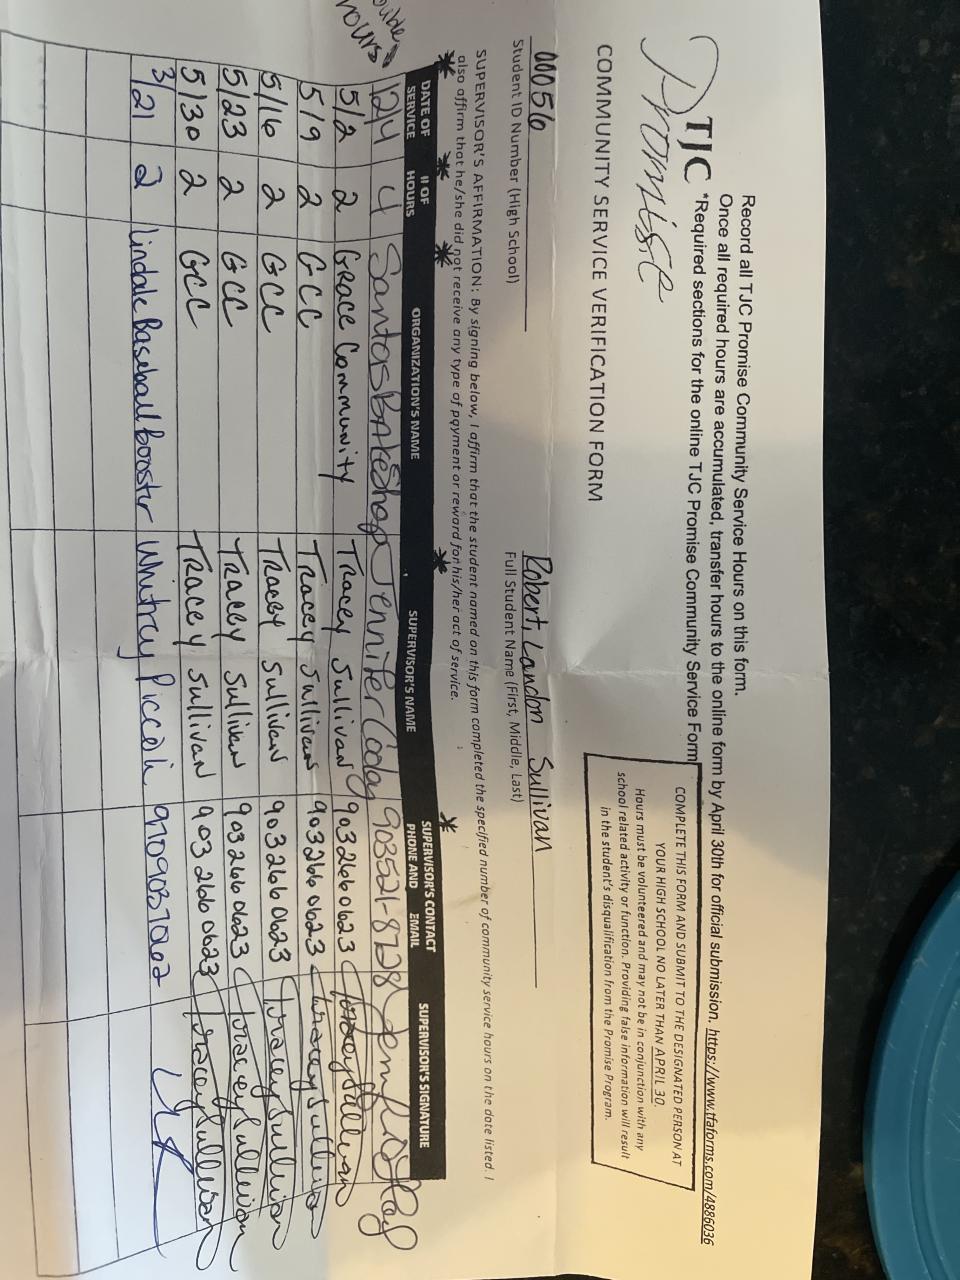 Record all TJC Promise Community Service Hours on this form.
Once all required hours are accumulated, transfer hours to the online form by April 30th for official submission. https://www.tfaforms.com/4886036
TJC *Required sections for the online TJC Promise Community Service Form
Promise
COMPLETE THIS FORM AND SUBMIT TO THE DESIGNATED PERSON AT
YOUR HIGH SCHOOL NO LATER THAN APRIL 30.
Hours must be volunteered and may not be in conjunction with any
school related activity or function. Providing false information will result
in the student's disqualification from the Promise Program.
COMMUNITY SERVICE VERIFICATION FORM
Robert, Landon Sullivan
Student ID Number (High School) Full Student Name (First, Middle, Last)
SUPERVISOR'S AFFIRMATION: By signing below, I affirm that the student named on this form completed the specified number of community service hours on the date listed. I
also affirm that he/she did not receive any type of payment or reward for his/her act of service.
hours
* * * * *
DATE OF SERVICE # OF HOURS ORGANIZATION'S NAME SUPERVISOR'S NAME SUPERVISOR'S CONTACT PHONE AND EMAIL SUPERVISOR'S SIGNATURE
12/4 4 Santos Bakeshop Jennifer Coday 903521-8728
5/2 2 Grace Community Tracey Sullivan 903 266 0623 Tracey Sullivan
5/9 2 GCC Tracey Sullivan 903 266 0623 Tracey Sullivan
5/16 2 GCC Tracey Sullivan 903 266 0623 Tracey Sullivan
5/23 2 GCC Tracey Sullivan 903 266 0623 Tracey Sullivan
5/30 2 GCC Tracey Sullivan 903 266 0623 Tracey Sullivan
3/21 2 Lindale Baseball booster